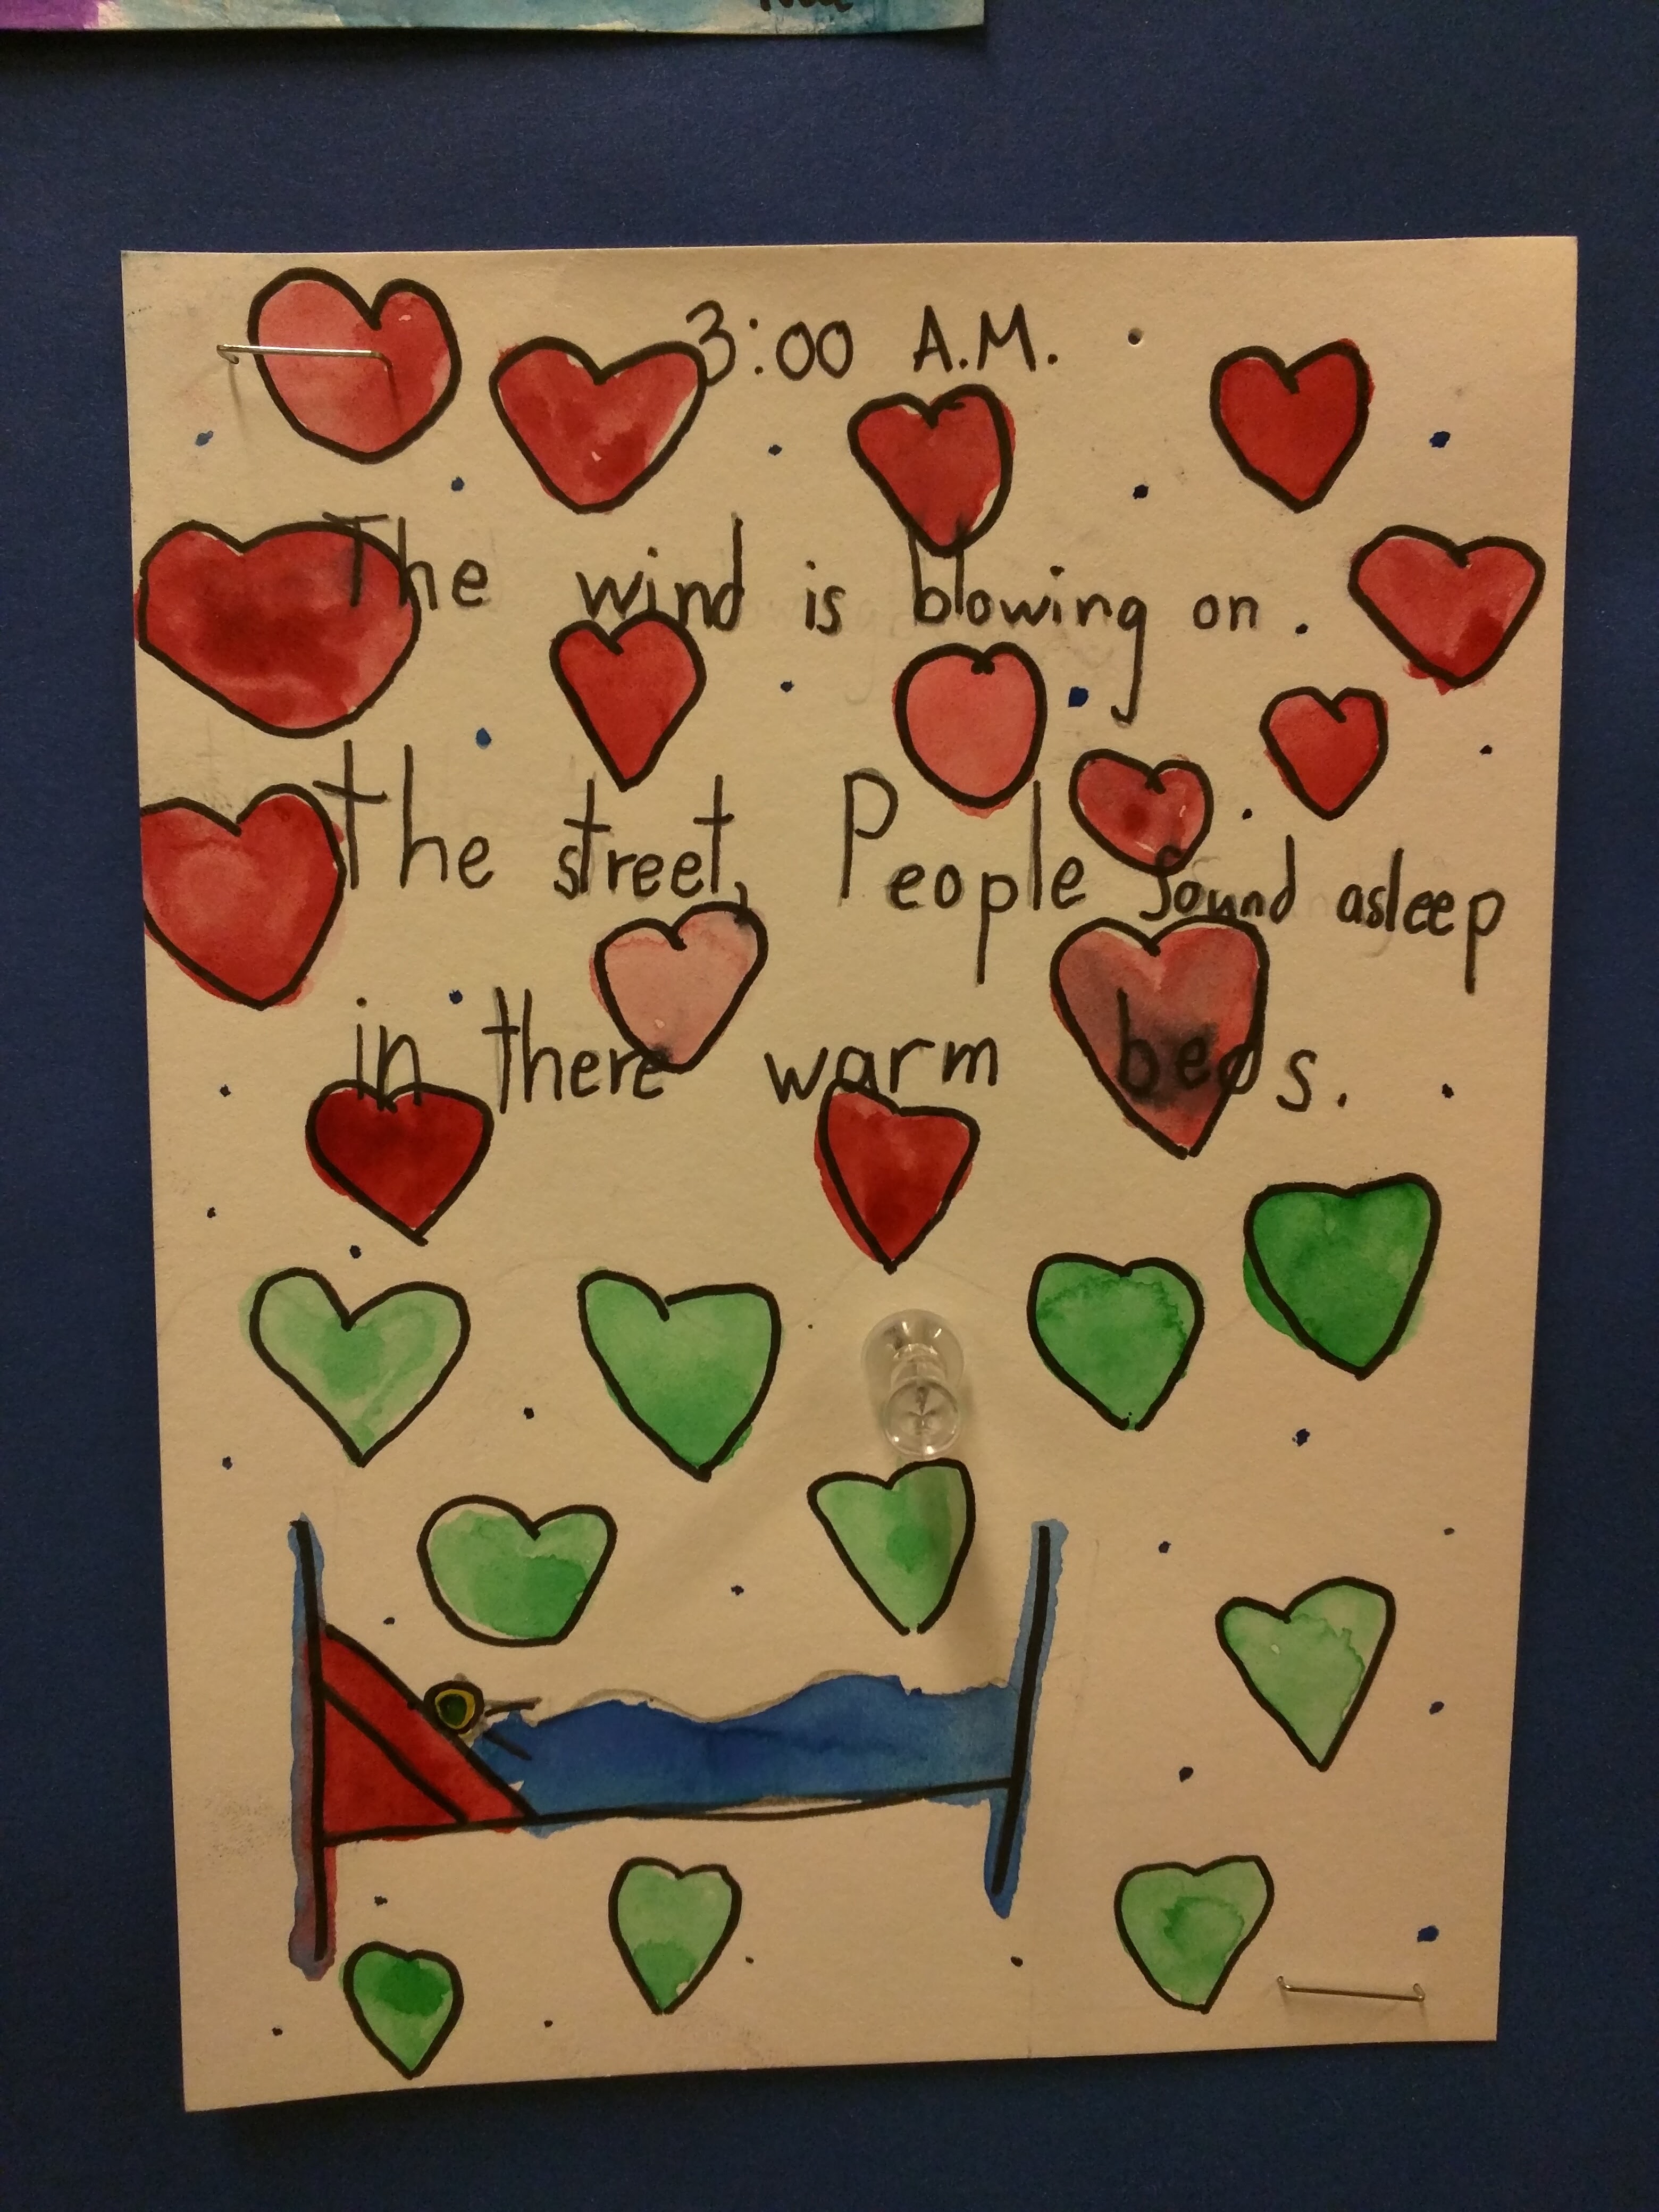 3:00 A.M.
The wind is blowing on.
the street, People sound asleep
in there warm beds.